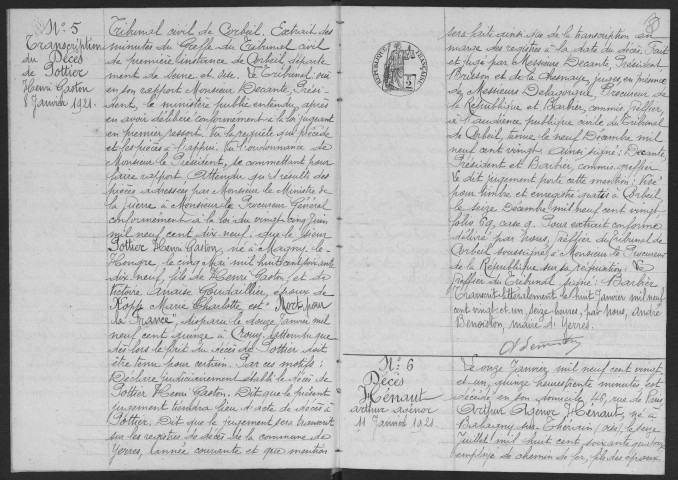 N° 5
Transcription
du Décès
de Pottier
Henri Gaston
8 Janvier 1921.
Tribunal civil de Corbeil. Extrait des
minutes du Greffe du Tribunal civil
de première instance de Corbeil département
de Seine et Oise. Le Tribunal, ouï
en son rapport Monsieur Decante, Président,
le ministère public entendu, après
en avoir délibéré conformément à la loi jugeant
en premier ressort. Vu la requête qui précède
et les pièces à l'appui. Vu l'ordonnance de
Monsieur le Président, le commettant pour
faire rapport. Attendu qu'il résulte des
pièces adressées par Monsieur le Ministre de
la Guerre à Monsieur le Procureur Général
conformément à la loi du vingt cinq juin
mil neuf cent dix neuf, que le sieur
Pottier Henri Gaston, né à Magny-le-
Hongre le cinq Mai mil huit cent soixante
dix neuf, fils de Henri Gaston, et de
Victoire Anaïse Goudaillier, époux de
Kopp Marie Charlotte est "Mort pour
la France", disparu le douze Janvier mil
neuf cent quinze à Crouy. Attendu que
dès lors le fait du décès de Pottier doit
être tenu pour certain. Par ces motifs :
Déclare judiciairement établi le décès de
Pottier Henri Gaston. Dit que le présent
jugement tiendra lieu d'acte de décès à
Pottier. Dit que le jugement sera transcrit
sur les registres de décès de la commune de
Yerres, l'année courante et que mention
RÉPUBLIQUE FRANÇAISE
8
sera faite ainsi que de la transcription en
marge des registres à la date du décès. Fait
et jugé par Messieurs Decante, Président
Brisson et de la Chesnaye, juges, en présence
de Messieurs Delagorgue, Procureur de
la République et Barbier, commis greffier,
à l'audience publique civile du Tribunal
de Corbeil, tenue le neuf Décembre mil
neuf cent vingt. Ainsi signé : Decante,
Président et Barbier, commis greffier
Le dit jugement porte cette mention : Visé
pour timbre et enregistré gratis à Corbeil
le seize Décembre mil neuf cent vingt
folio 69, case 9. Pour extrait conforme
délivré par nous, greffier du Tribunal de
Corbeil soussigné, à Monsieur le Procureur
de la République sur sa réquisition : Le
greffier du Tribunal, signé : Barbier
Transcrit littéralement le huit Janvier mil neuf
cent vingt-et-un, seize heures, par nous, André
Benoidon, maire d'Yerres.
N° 6
Décès
Hénaut
Arthur Agénor
11 Janvier 1921
Le onze Janvier mil neuf cent vingt
et un, quinze heures trente minutes est
décédé en son domicile 48, rue de Paris
Arthur Agénor Hénaut, né à
Balagny-sur-Thérain (Oise) le seize
Juillet mil huit cent soixante quatorze
employé de chemin de fer, fils des époux